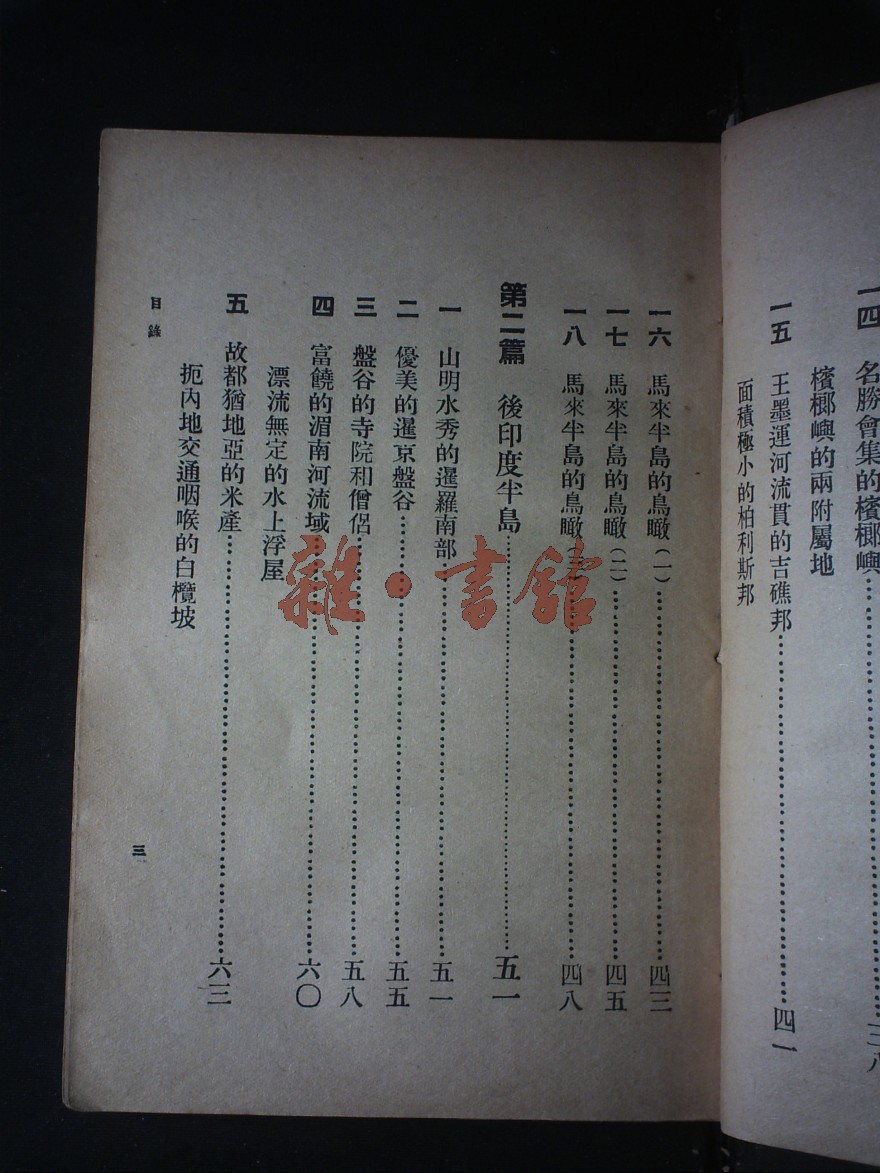 一四 名勝會集的檳榔嶼……三八
檳榔嶼的兩附屬地
一五 王墨運河流貫的吉礁邦……四一
面積極小的柏利斯邦
一六 馬來半島的鳥瞰(一)……四三
一七 馬來半島的鳥瞰(二)……四五
一八 馬來半島的鳥瞰(三)……四八
第二篇 後印度半島……五一
一 山明水秀的暹羅南部……五一
二 優美的暹京盤谷……五五
三 盤谷的寺院和僧侶……五八
四 富饒的湄南河流域……六〇
漂流無定的水上浮屋
五 故都猶地亞的米產……六三
扼內地交通咽喉的白欖坡
目錄
三
雜·書館